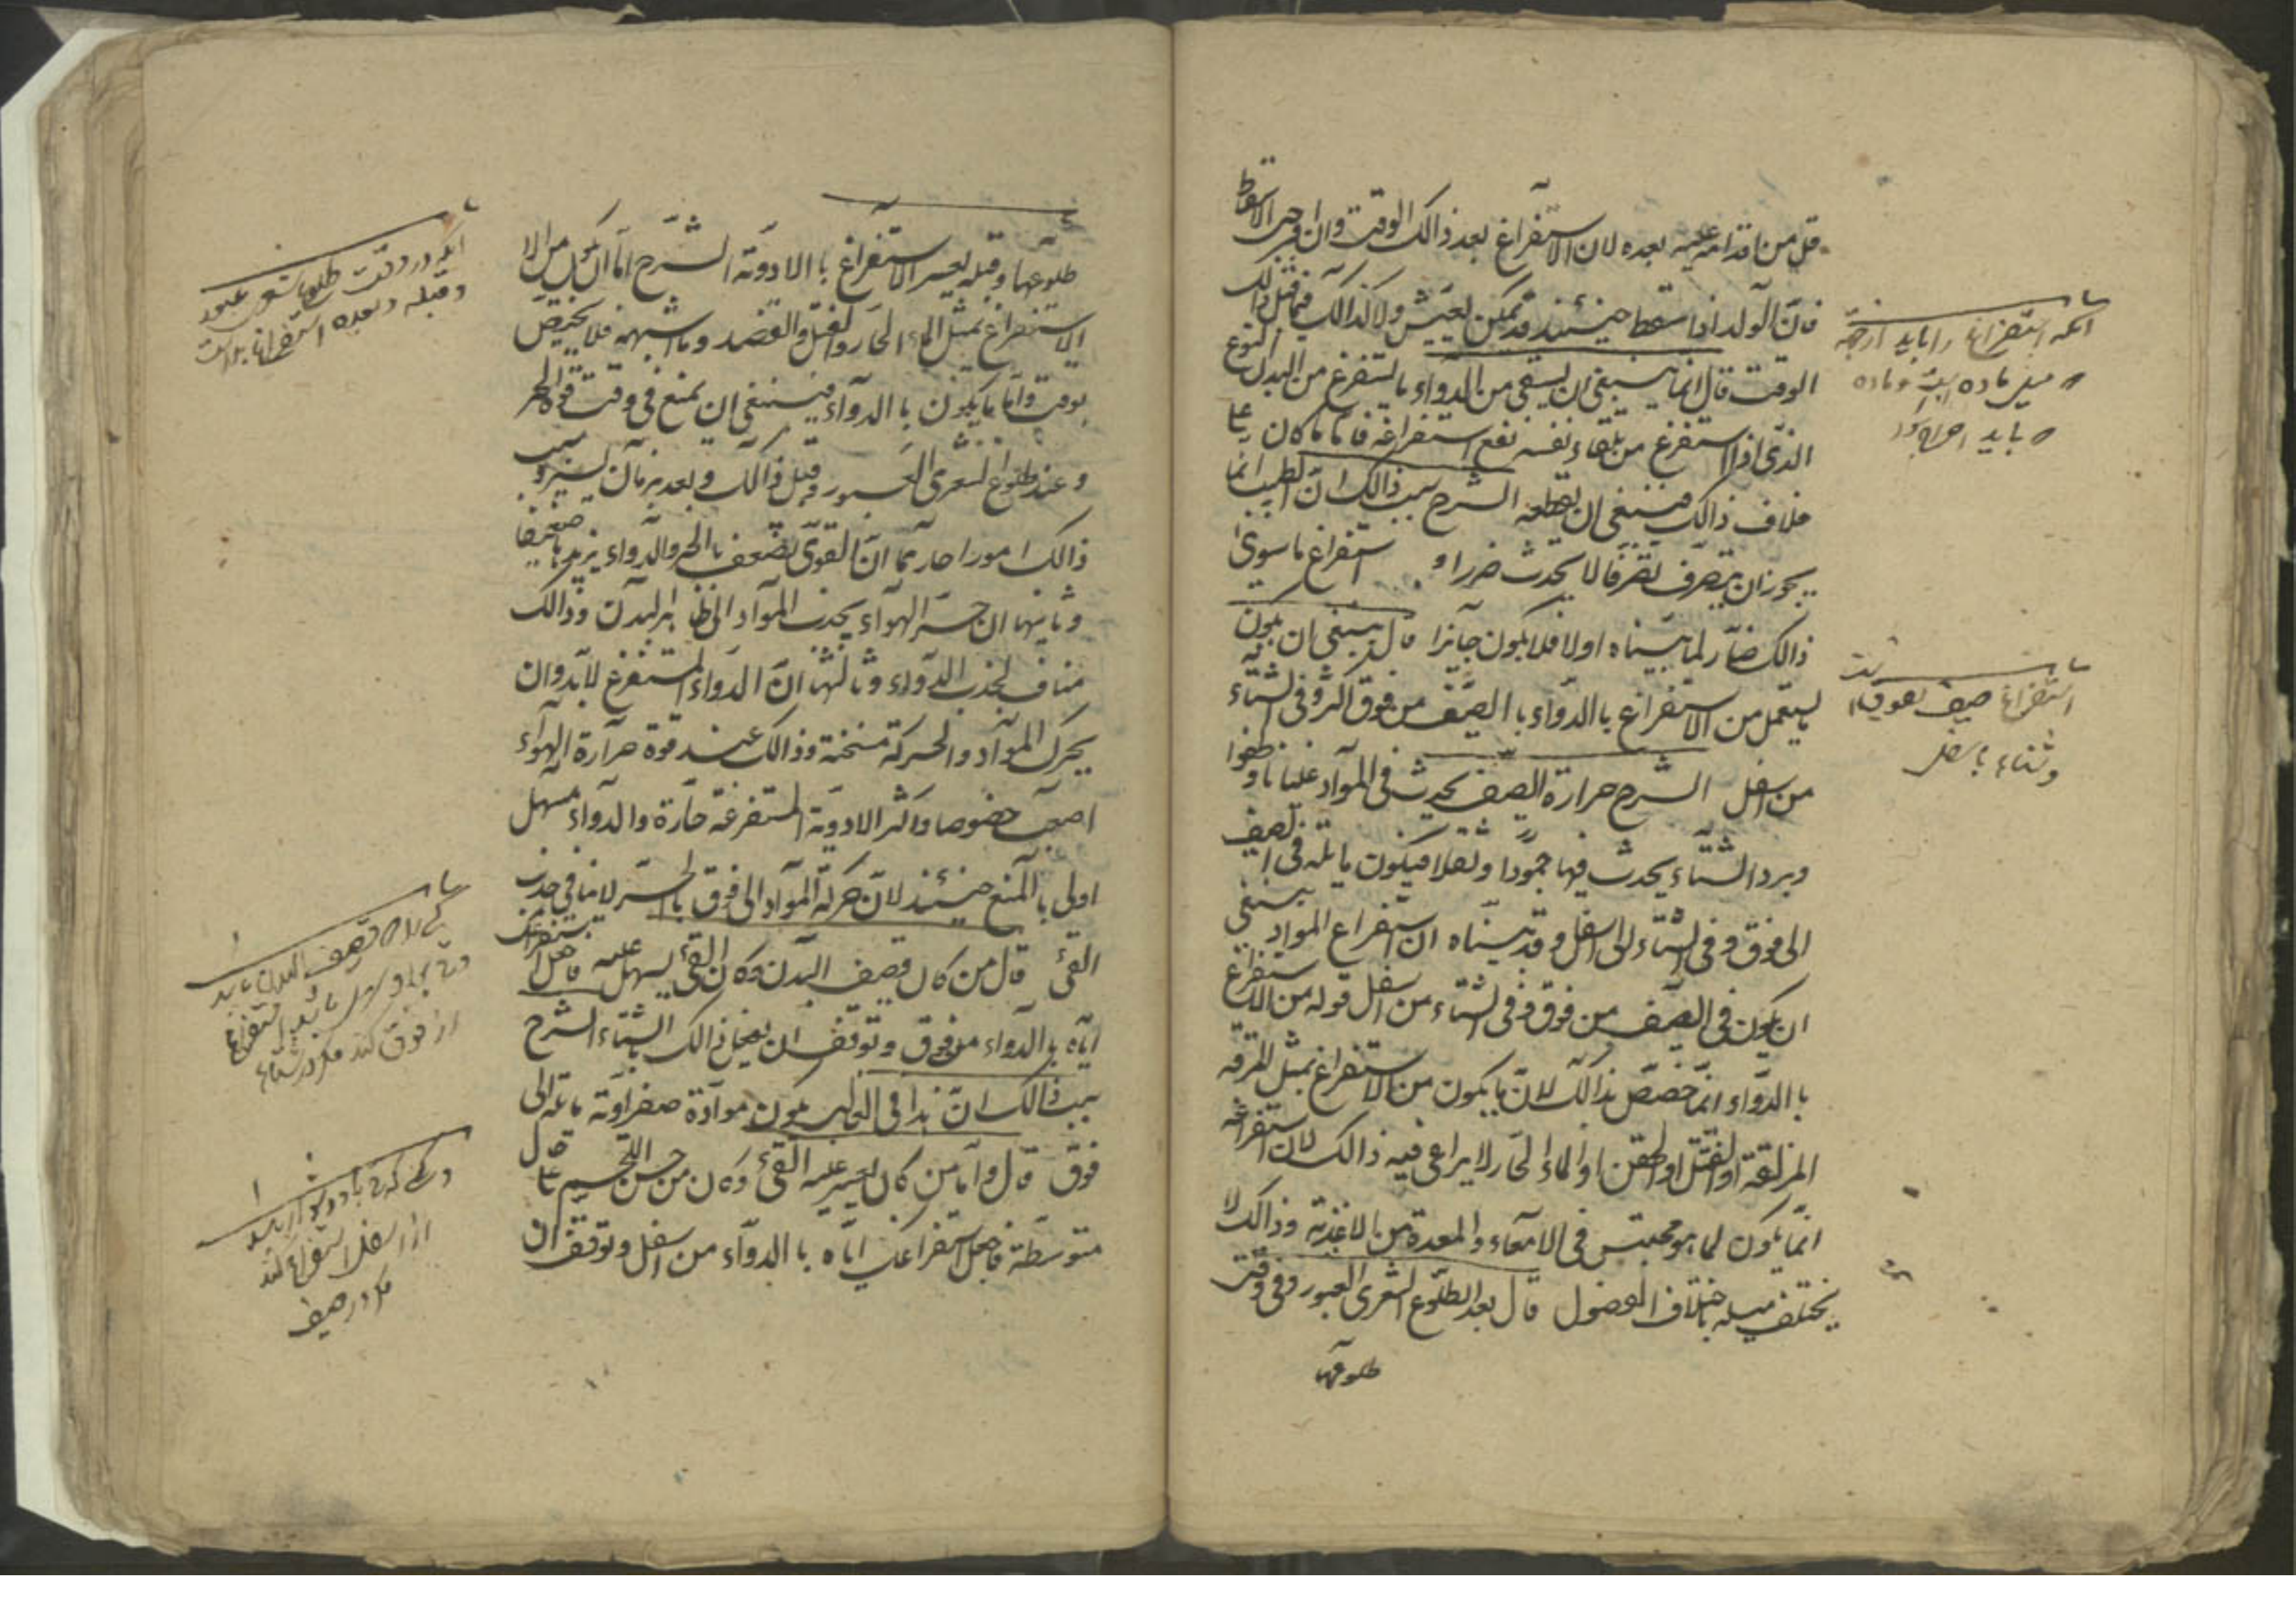 قل من اقدامه عليه بعده لان الاستفراغ بعد ذالك الوقت وان اوجب الاسقاط
فان الولد اذا سقط حينئذ قد يمكن ان يعيش ولا كذالك فيما قبل ذالك
الوقت قال انما ينبغى ان يسقى من الدواء ما يستفرغ من البدن النوع
الذى اذا استفرغ من تلقاء نفسه نفع استفراغه فاما ما كان على
خلاف ذالك فينبغى ان يقطعه الشرح سبب ذالك ان الطبيب انما
يجوز ان يتصرف تصرفا لا يحدث ضررا و استفراغ ما سوى
ذالك ضار لما بيناه اولا فلا يكون جائزا قال ينبغى ان يكون
ما يستعمل من الاستفراغ با الدواء با الصيف من فوق اكثر وفى الشتاء
من اسفل الشرح حرارة الصيف يحدث فى المواد غليانا وطفوا
وبرد الشتاء يحدث فيها جمودا وثقلا فيكون مايلة فى الصيف
الى فوق وفى الشتاء الى اسفل وقد بيناه ان استفراغ المواد ينبغى
ان يكون فى الصيف من فوق وفى الشتاء من اسفل قوله من الاستفراغ
با الدواء انما خصص بذالك لان ما يكون من الاستفراغ بمثل المرقة
المزلقة او الفتل او الحقن او الماء الحار لا يراعى فيه ذالك لان استفراغه
انما يكون لما هو محتبس فى الامعاء والمعدة من الاغذية وذالك لا
يختلف ميله باختلاف الفصول قال بعد الطلوع الشعرى العبور وفى وقت
طلوعها
انكه استفراغ را بايد از جهة
ميل ماده
بايد
استفراغ صيف بفوق است
وشتاء باسفل
طلوعها وقبله يعسر الاستفراغ با الادوية الشرح اما ان يكون من الا
الاستفراغ بمثل الماء الحار والفتل والفصد وما اشبهه فلا يختص
بوقت واما ما يكون با الدواء فينبغى ان يمنع فى وقت قوة الحر
وعند طلوع الشعرى العبور وقبل ذالك وبعد بزمان يسير وسبب
ذالك امور احدها ان القوى يضعف با الحر والدواء يزيدها ضعفا
وثانيها ان حر الهواء يجذب المواد الى ظاهر البدن وذالك
مناف لجذب الدواء وثالثها ان الدواء المستفرغ لا بد وان
يحرك المواد والحركة مسخنة وذالك عند قوة حرارة الهواء
اصعب خصوصا واكثر الادوية المستفرغة حارة والدواء مسهل
اولى با المنع حينئذ لان حركة المواد الى فوق با الحر لا ينافى جذب
القئ قال من كان قضيف البدن وكان القئ يسهل عليه فاجعل استفراغك
اياه با الدواء من فوق وتوقف ان يفعل ذالك با الشتاء الشرح
سبب ذالك ان هذا فى الغالب يكون مواده صفراوية مايلة الى
فوق قال واما من كان يعسر عليه القئ وكان من حسن اللحم على حال
متوسطة فاجعل استفراغك اياه با الدواء من اسفل وتوقف ان
انكه در وقت طلوع شعرى عبور
وقبله وبعده استفراغ
كسى را كه قضيف البدن بايد
از فوق كند مكر در شتاء
از اسفل استفراغ كند
مكر در صيف